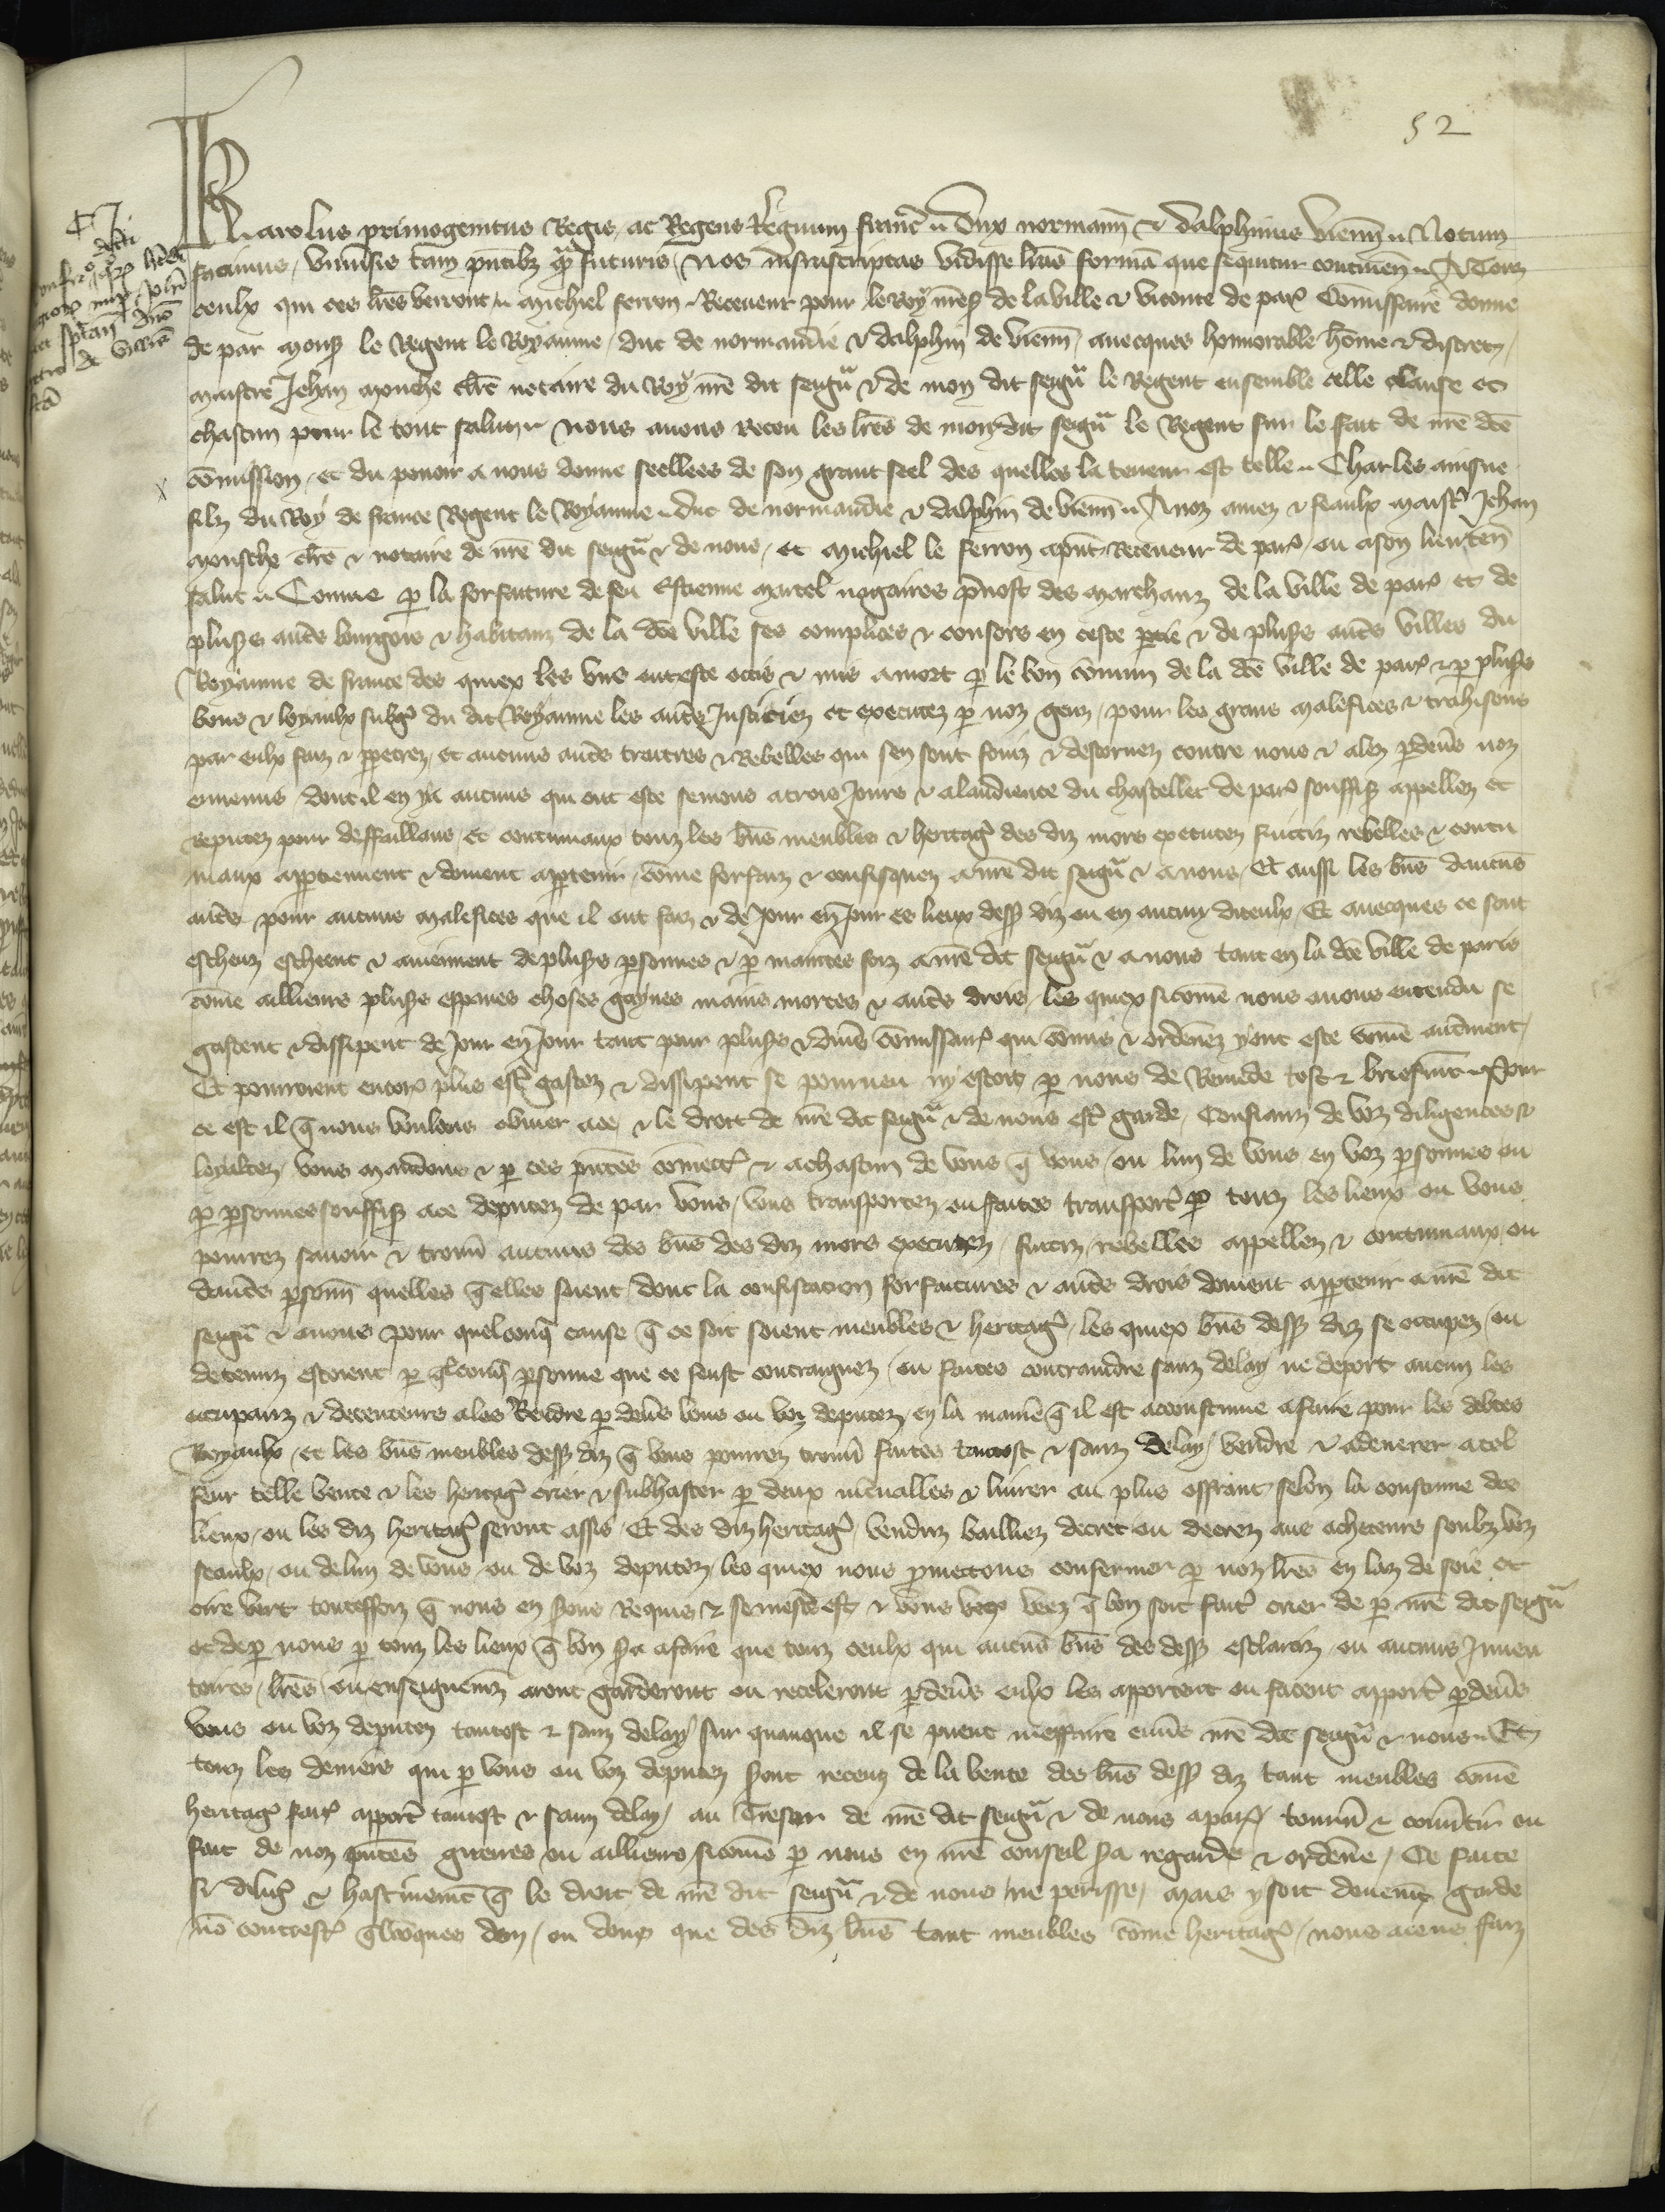 52
Karolus primogenitus Regis ac Regens Regnum franc Dux normann & dalphinus vienn Notum
facimus vniusis tam pntibz qm futuris Nos infrascriptas vidisse lras formam que sequitur continen A Touz
ceulx qui ces lres verront Michiel ferron Receueur pour le Roy nres de la ville & viconte de par Commissaire donne
de par mons le Regent le Royaume duc de normandie & dalphin de vienn auecques honnorable homme & discret
maistre Jehan mouche clerc notaire du Roy nre dit seigur & de mon dit seigur le Regent ensemble celle clause et
chascun pour le tout salut Nous auons receu les lres de mondit seigur le Regent sur le fait de nre dce
commission et du pouoir a nous donne seellees de son grant seel des quelles la teneur est telle Charles ainsne
filz du Roy de france Regent le Royaume duc de normandie & dalphin de vienn A noz amez & feaulx maistr Jehan
mousche clerc & notaire de nre dit seigur & de nous et Michiel le ferron apnt Receueur de par ou a son lieuten
salut Comme p la forfaiture de feu Estienne marcel nagaires preuost des marchanz de la ville de par et de
pluss autres bourgois & habitanz de la dce ville ses complices & consors en ceste partie & de pluss autres villes du
Royaume de france des quiex les vns ont este occis & mis a mort p le bon commun de la dce ville de par & p pluss
bons & loyaulx subgz du dit Royaume les autres Justiciez et executez p noz genz pour les grans malefices & trahisons
par eulx faiz & perpetrez et aucuns autres traitres & Rebelles qui sen sont fouiz & destornez contre nous & alez pdeuers noz
ennemis dont il en y a aucuns qui ont este semons a trois Jours & a laudience du chastellet de par souffis appellez et
reputez pour deffaillans et contumaux touz les biens meubles & heritag des diz mors executez fuitiz rebelles & contu
maux apptiennent & doiuent apptenir comme forfaiz & confisquez a nre dit seigur & a nous Et aussi les biens daucuns
autres pour aucuns malefices que il ont faiz & de Jour en Jour es lieux dess diz ou en aucun diceulx Et auecques ce sont
escheuz escheent & auiennent de pluss psonnes & p maintes foiz a nre dit seigur & a nous tant en la dce ville de paris
comme ailleurs pluss espaues choses gaynes mains mortes & autres drois les quiex sicomme nous auons entendu se
gastent & dissipent de Jour en Jour tant pour pluss & diuers commissaires qui commis & ordenez y ont este comme autrement
Et pourroient encor plus estr gastez & dissipent se pourueu ny estoit p nous de Remede tost & briefment Pour
ce est il q nous voulons obuier a ce & le droit de nre dit seigur & de nous estr garde Confianz de voz diligences &
loyaltez vous mandons & p ces pntes commett & a chascun de vous q vous ou lun de vous en voz psonnes ou
p psonnes souffis a ce deputez de par vous vous transportez ou faites transport p touz les lieux ou vous
pourrez sauoir & trouu aucuns des biens des diz mors executez fuitiz rebelles appellez & contumaux ou
dautres psonn quelles q elles soient dont la confiscacion forfaitures & autres drois doiuent apptenir a nre dit
seigur & a nous pour quelconq cause q ce soit soient meubles & heritag les quiex biens dess diz se occupez ou
detenuz estoient p qlconq psonne que ce feust contraignez ou faites contraindre sanz delay ne deport aucun les
occupanz & detenteurs a les Rendre p deuers vous ou voz deputez en la maniere q il est acoustume a faire pour les debtes
Royaulx et les biens meubles dess diz q vous pourrez trouu faites tantost & sanz delay vendre & adenerer a tel
feur telle vente & les heritag crier & subhaster p deux interualles & liurer au plus offrant selon la coustume des
lieux ou les diz heritag seront assis Et des diz heritag venduz bailliez decret ou decrez aus acheteurs soubz voz
seaulx ou de lun de vous ou de voz deputez les quiex nous pmettons confermer p noz lres en laz de soie et
cire vert toutesfoiz q nous en serons Requis & se mestier est & vous voyez q bon soit faites crier de p nre dit seigur
et de p nous p touz les lieux q bon sera a faire que touz ceulx qui aucuns biens des dess esclarciz ou aucuns Inuen
toires lres ou enseignemenz aront garderont ou receleront pdeuers eulx les apportent ou facent apport pdeuers
vous ou voz deputez tantost & sanz delay sur quanque il se puent meffaire enuers nre dit seigur & nous Et
touz les deniers qui p vous ou voz deputez seront receuz de la vente des biens dess diz tant meubles comme
heritag fait apport tantost & sanz delay au Tresor de nre dit seigur & de nous a par tourn & conuertir ou
fait de noz pntes guerres ou ailleurs sicomme p nous en nre conseil sera regarde & ordenne Ce faites
si dilig & hastiuement q le droit de nre dit seigur & de nous ne perisse mais y soit deuement garde
non contrest qlcoques don ou dons que des diz biens tant meubles comme heritag nous aions faiz